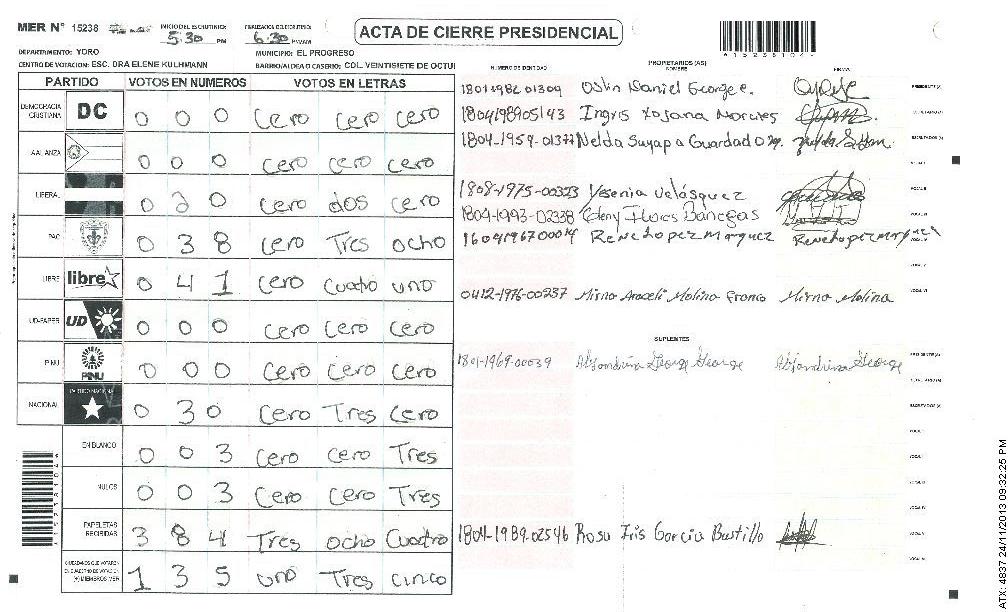 MER N° 15238 INICIO DEL ESCRUTINIO: 5:30 PM FINALIZACION DEL ESCRUTINIO: 6:30 PM/AM ACTA DE CIERRE PRESIDENCIAL
DEPARTAMENTO: YORO MUNICIPIO: EL PROGRESO
CENTRO DE VOTACION: ESC. DRA ELENE KULHMANN BARRIO/ALDEA O CASERIO: COL. VEINTISIETE DE OCTU
PARTIDO VOTOS EN NUMEROS VOTOS EN LETRAS
DEMOCRACIA CRISTIANA DC 0 0 0 Cero Cero Cero
ALIANZA 0 0 0 Cero Cero Cero
LIBERAL 0 2 0 Cero dos Cero
PAC 0 3 8 Cero Tres ocho
LIBRE libre 0 4 1 Cero Cuatro uno
UD-FAPER UD 0 0 0 Cero Cero Cero
PINU PINU 0 0 0 Cero Cero Cero
NACIONAL PARTIDO NACIONAL 0 3 0 Cero Tres Cero
EN BLANCO 0 0 3 Cero Cero Tres
NULOS 0 0 3 Cero Cero Tres
PAPELETAS RECIBIDAS 3 8 4 Tres ocho Cuatro
CIUDADANOS QUE VOTARON EN CUADERNO DE VOTACION (+) MIEMBROS MER 1 3 5 uno Tres cinco
NUMERO DE IDENTIDAD PROPIETARIOS (AS) NOMBRE FIRMA
1801 1982 01309 Daniel George PRESIDENTE (A)
1804198905143 Ingris Morales SECRETARIO (A)
1804-1959-01377 Nelda Suyapa Guardado ESCRUTADOR (A)
1808-1975-00323 Yesenia Velásquez
1804-1993-02338 Flores Banegas
Rene Lopez Marquez Rene Lopez Marquez
0412-1976-00237 Mirna Araceli Molina Franco Mirna Molina
SUPLENTES
1801-1969-00039 Alejandrina George George Alejandrina George PRESIDENTE (A)
SECRETARIO (A)
ESCRUTADOR (A)
1804-1989-02546 Rosa Iris Garcia Bustillo
ATX: 4837 24/11/2013 09:32:25 PM